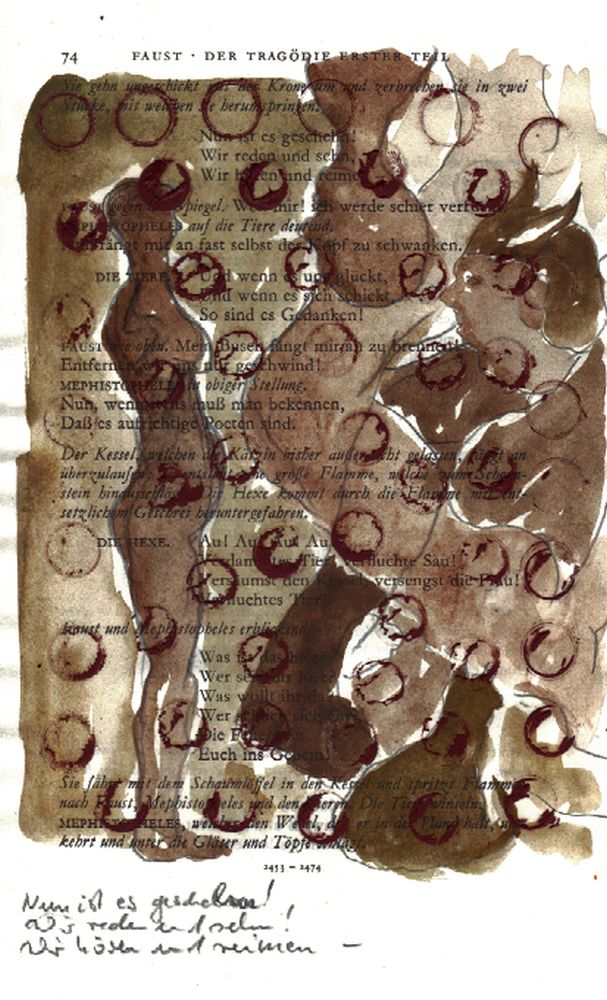 74 FAUST · DER TRAGÖDIE ERSTER TEIL
Sie gehn ungeschickt mit der Krone um und zerbrechen sie in zwei
Stücke, mit welchen sie herumspringen.
Nun ist es geschehn!
Wir reden und sehn,
Wir hören und reimen
FAUST gegen den Spiegel. Weh mir! ich werde schier verrückt.
MEPHISTOPHELES auf die Tiere deutend.
Nun fängt mir an fast selbst der Kopf zu schwanken.
DIE TIERE. Und wenn es uns glückt,
Und wenn es sich schickt,
So sind es Gedanken!
FAUST wie oben. Mein Busen fängt mir an zu brennen!
Entfernen wir uns nur geschwind!
MEPHISTOPHELES in obiger Stellung.
Nun, wenigstens muß man bekennen,
Daß es aufrichtige Poeten sind.
Der Kessel, welchen die Kätzin bisher außer acht gelassen, fängt an
überzulaufen; es entsteht eine große Flamme, welche zum Schorn-
stein hinausschlägt. Die Hexe kommt durch die Flamme mit ent-
setzlichem Geschrei heruntergefahren.
DIE HEXE. Au! Au! Au! Au!
Verdammtes Tier! verfluchte Sau!
Versäumst den Kessel, versengst die Frau!
Verfluchtes Tier!
Faust und Mephistopheles erblickend.
Was ist das hier?
Wer seid ihr hier?
Was wollt ihr da?
Wer schlich sich ein?
Die Feuerpein
Euch ins Gebein!
Sie fährt mit dem Schaumlöffel in den Kessel und spritzt Flammen
nach Faust, Mephistopheles und den Tieren. Die Tiere winseln.
MEPHISTOPHELES, welcher den Wedel, den er in der Hand hält, um-
kehrt und unter die Gläser und Töpfe schlägt.
2453 – 2474
Nun ist es geschehn!
Wir reden und sehn!
Wir hören und reimen –